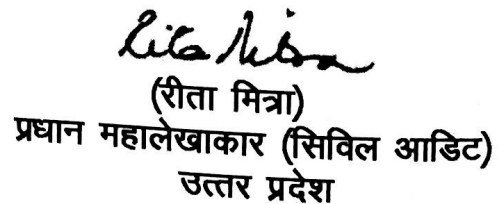 Rita Mitra
(रीता मित्रा)
प्रधान महालेखाकार (सिविल आडिट)
उत्तर प्रदेश